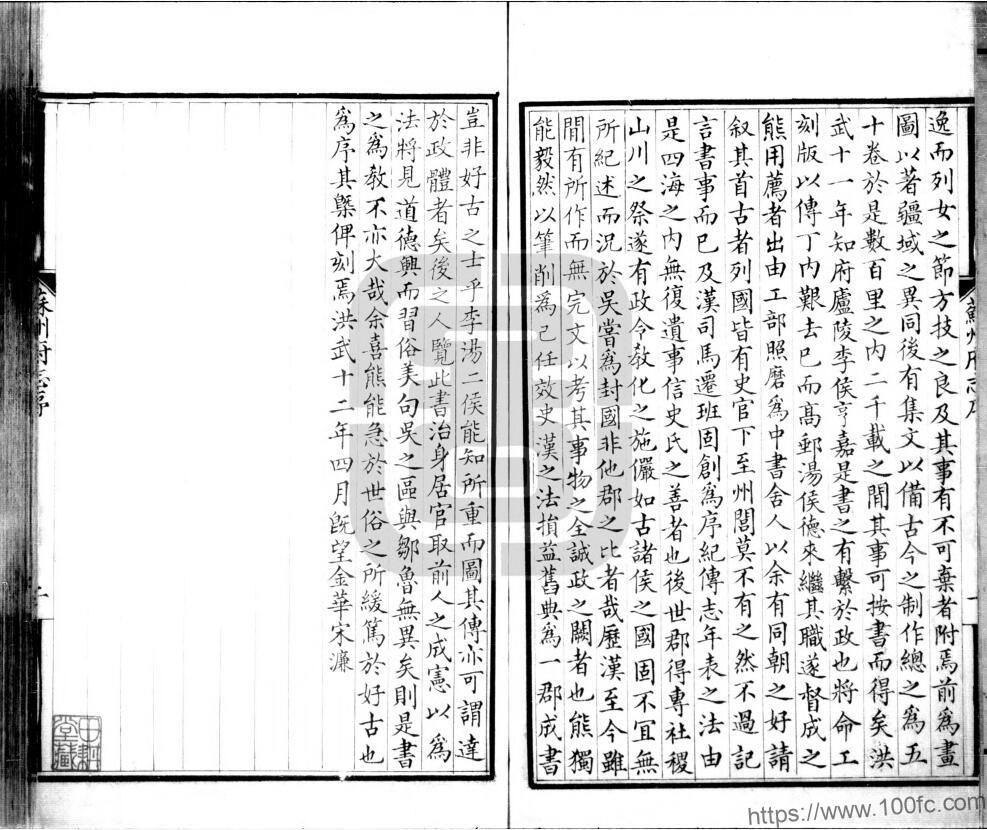 逸而列女之節方技之良及其事有不可棄者附焉前為畫
圖以著疆域之異同後有集文以備古今之制作總之為五
十卷於是數百里之內二千載之間其事可按書而得矣洪
武十一年知府廬陵李侯亨嘉是書之有繫於政也將命工
刻版以傳丁內艱去巳而高郵湯侯德來繼其職遂督成之
熊用薦者出由工部照磨為中書舍人以余有同朝之好請
叙其首古者列國皆有史官下至州閭莫不有之然不過記
言書事而巳及漢司馬遷班固創為序紀傳志年表之法由
是四海之內無復遺事信史氏之善者也後世郡得專社稷
山川之祭遂有政令教化之施儼如古諸侯之國固不冝無
所紀述而況於吳嘗為封國非他郡之比者哉歷漢至今雖
間有所作而無完文以考其事物之全誠政之闕者也熊獨
能毅然以筆削為己任效史漢之法損益舊典為一郡成書
蘇州府志序
一
豈非好古之士乎李湯二侯能知所重而圖其傳亦可謂達
於政體者矣後之人覽此書治身居官取前人之成憲以為
法將見道德興而習俗美句吳之區與鄒魯無異矣則是書
之為教不亦大哉余喜熊能急於世俗之所緩篤於好古也
為序其槩俾刻焉洪武十二年四月旣望金華宋濂
蘇州府志序
二
https://www.100fc.com